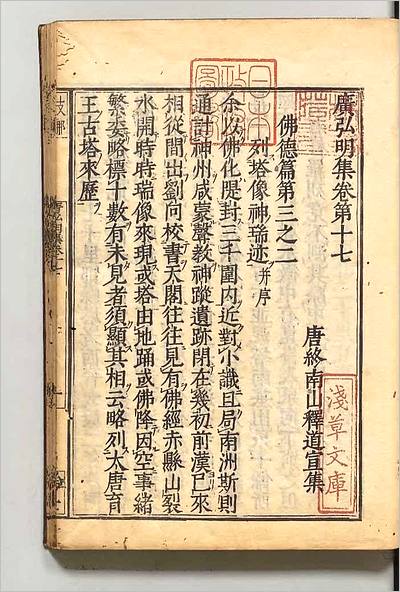 廣弘明集卷第十七
唐終南山釋道宣集
佛德篇第三之二
列塔像神瑞迹并序
余以佛化隄封三千圍内近對小識且局南洲斯則
通計神州咸蒙聲教神蹤遺跡閉在幾初前漢已來
相從間出劉向校書天閣往往見有佛經赤縣山裂
水開時時瑞像來現或塔由地踊或佛降因空事緒
繁委略標十數有未見者須顯其相云略列大唐育
王古塔來歷
支那
淺草文庫